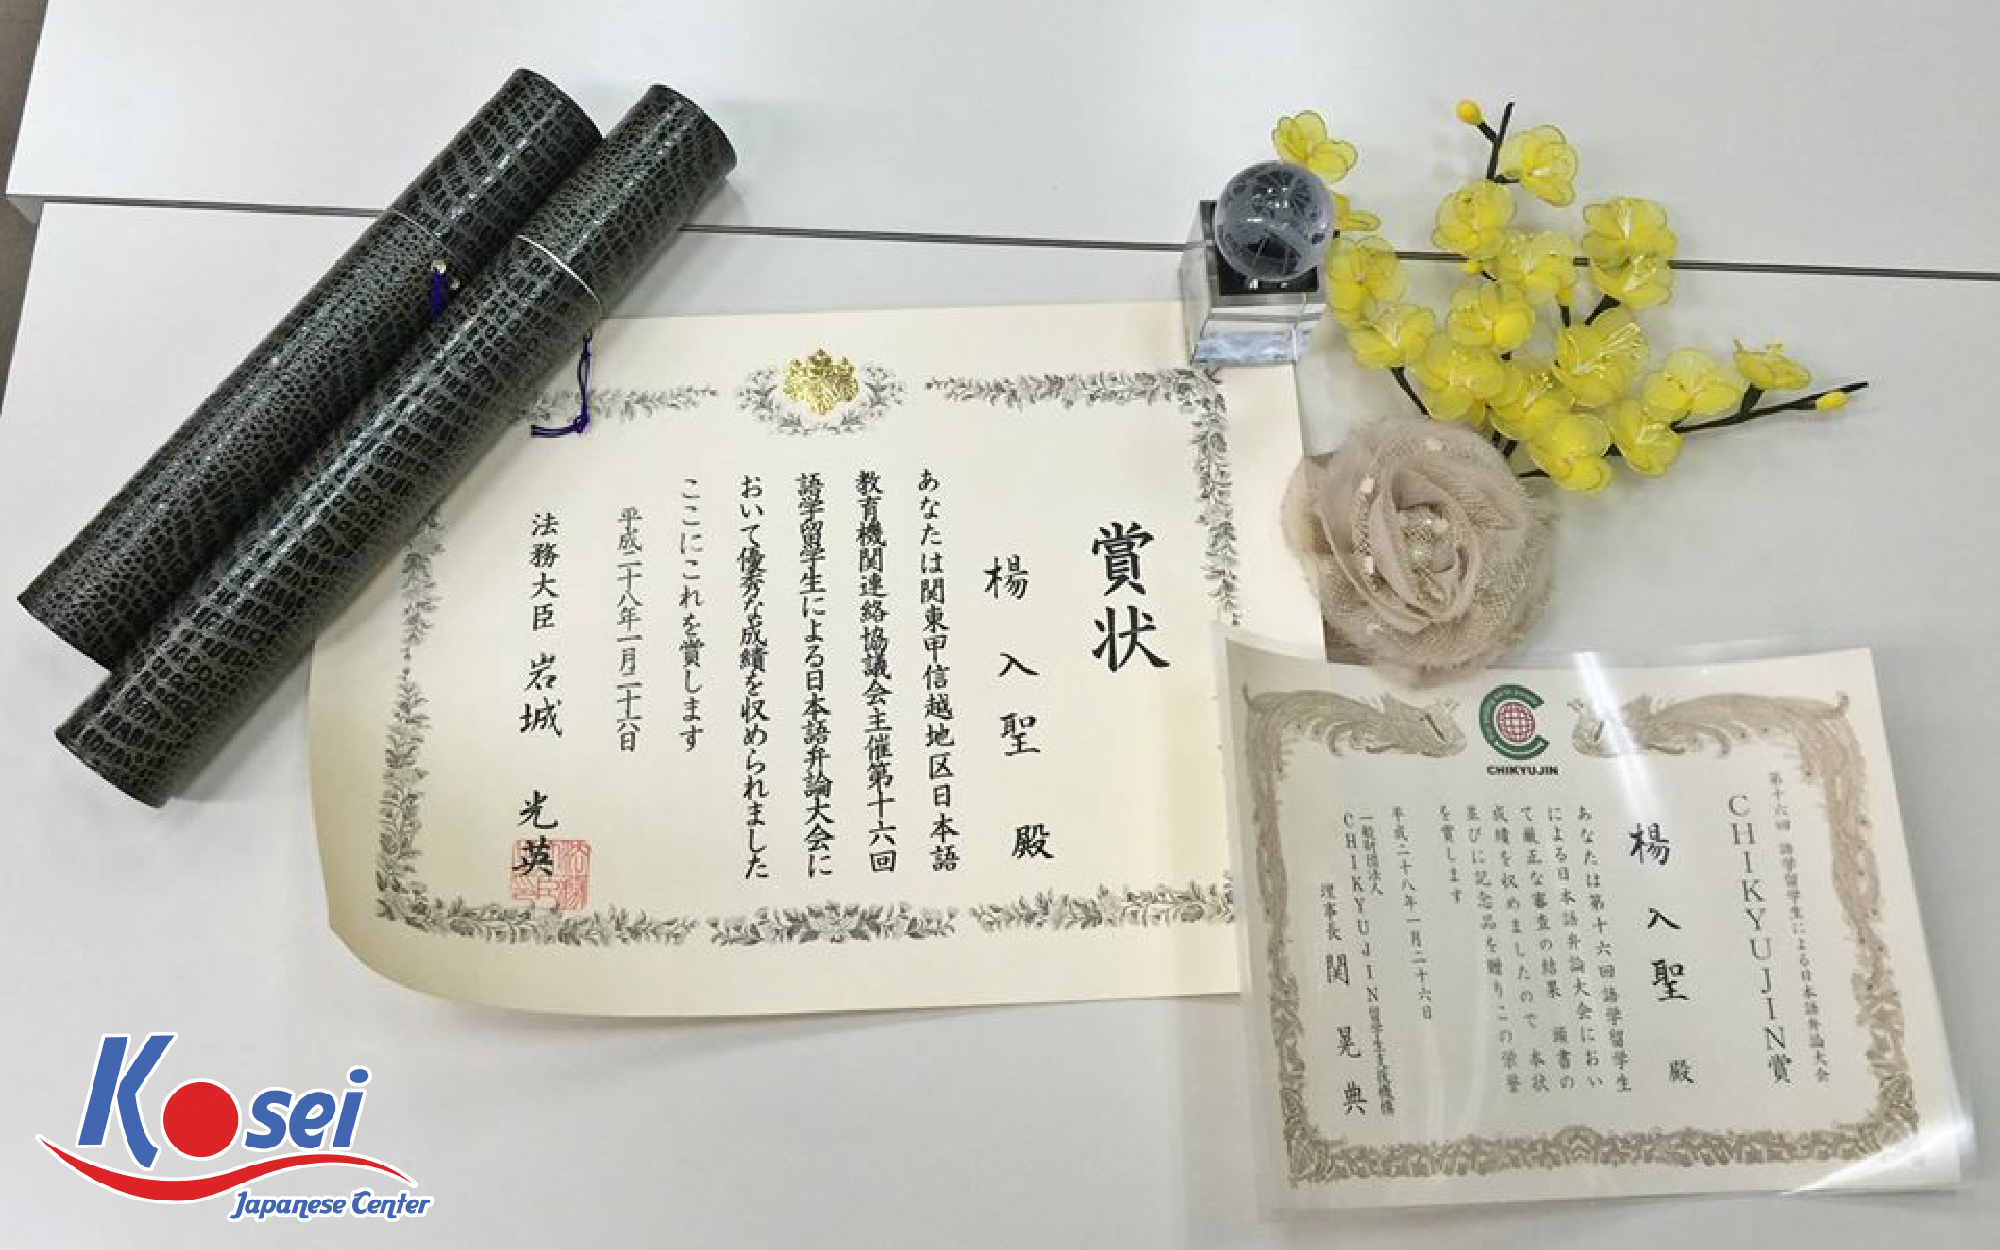 賞状
楊入聖殿
あなたは関東甲信越地区日本語
教育機関連絡協議会主催第十六回
語学留学生による日本語弁論大会に
おいて優秀な成績を収められました
ここにこれを賞します
平成二十八年一月二十六日
法務大臣 岩城光英
CHIKYUJIN
第十六回 語学留学生による日本語弁論大会
CHIKYUJIN賞
楊入聖殿
あなたは第十六回語学留学生
による日本語弁論大会におい
て厳正な審査の結果 頭書の
成績を収めましたので 本状
並びに記念品を贈りこの栄誉
を賞します
平成二十八年一月二十六日
一般財団法人
CHIKYUJIN留学生支援機構
理事長 関 晃典
Kosei
Japanese Center